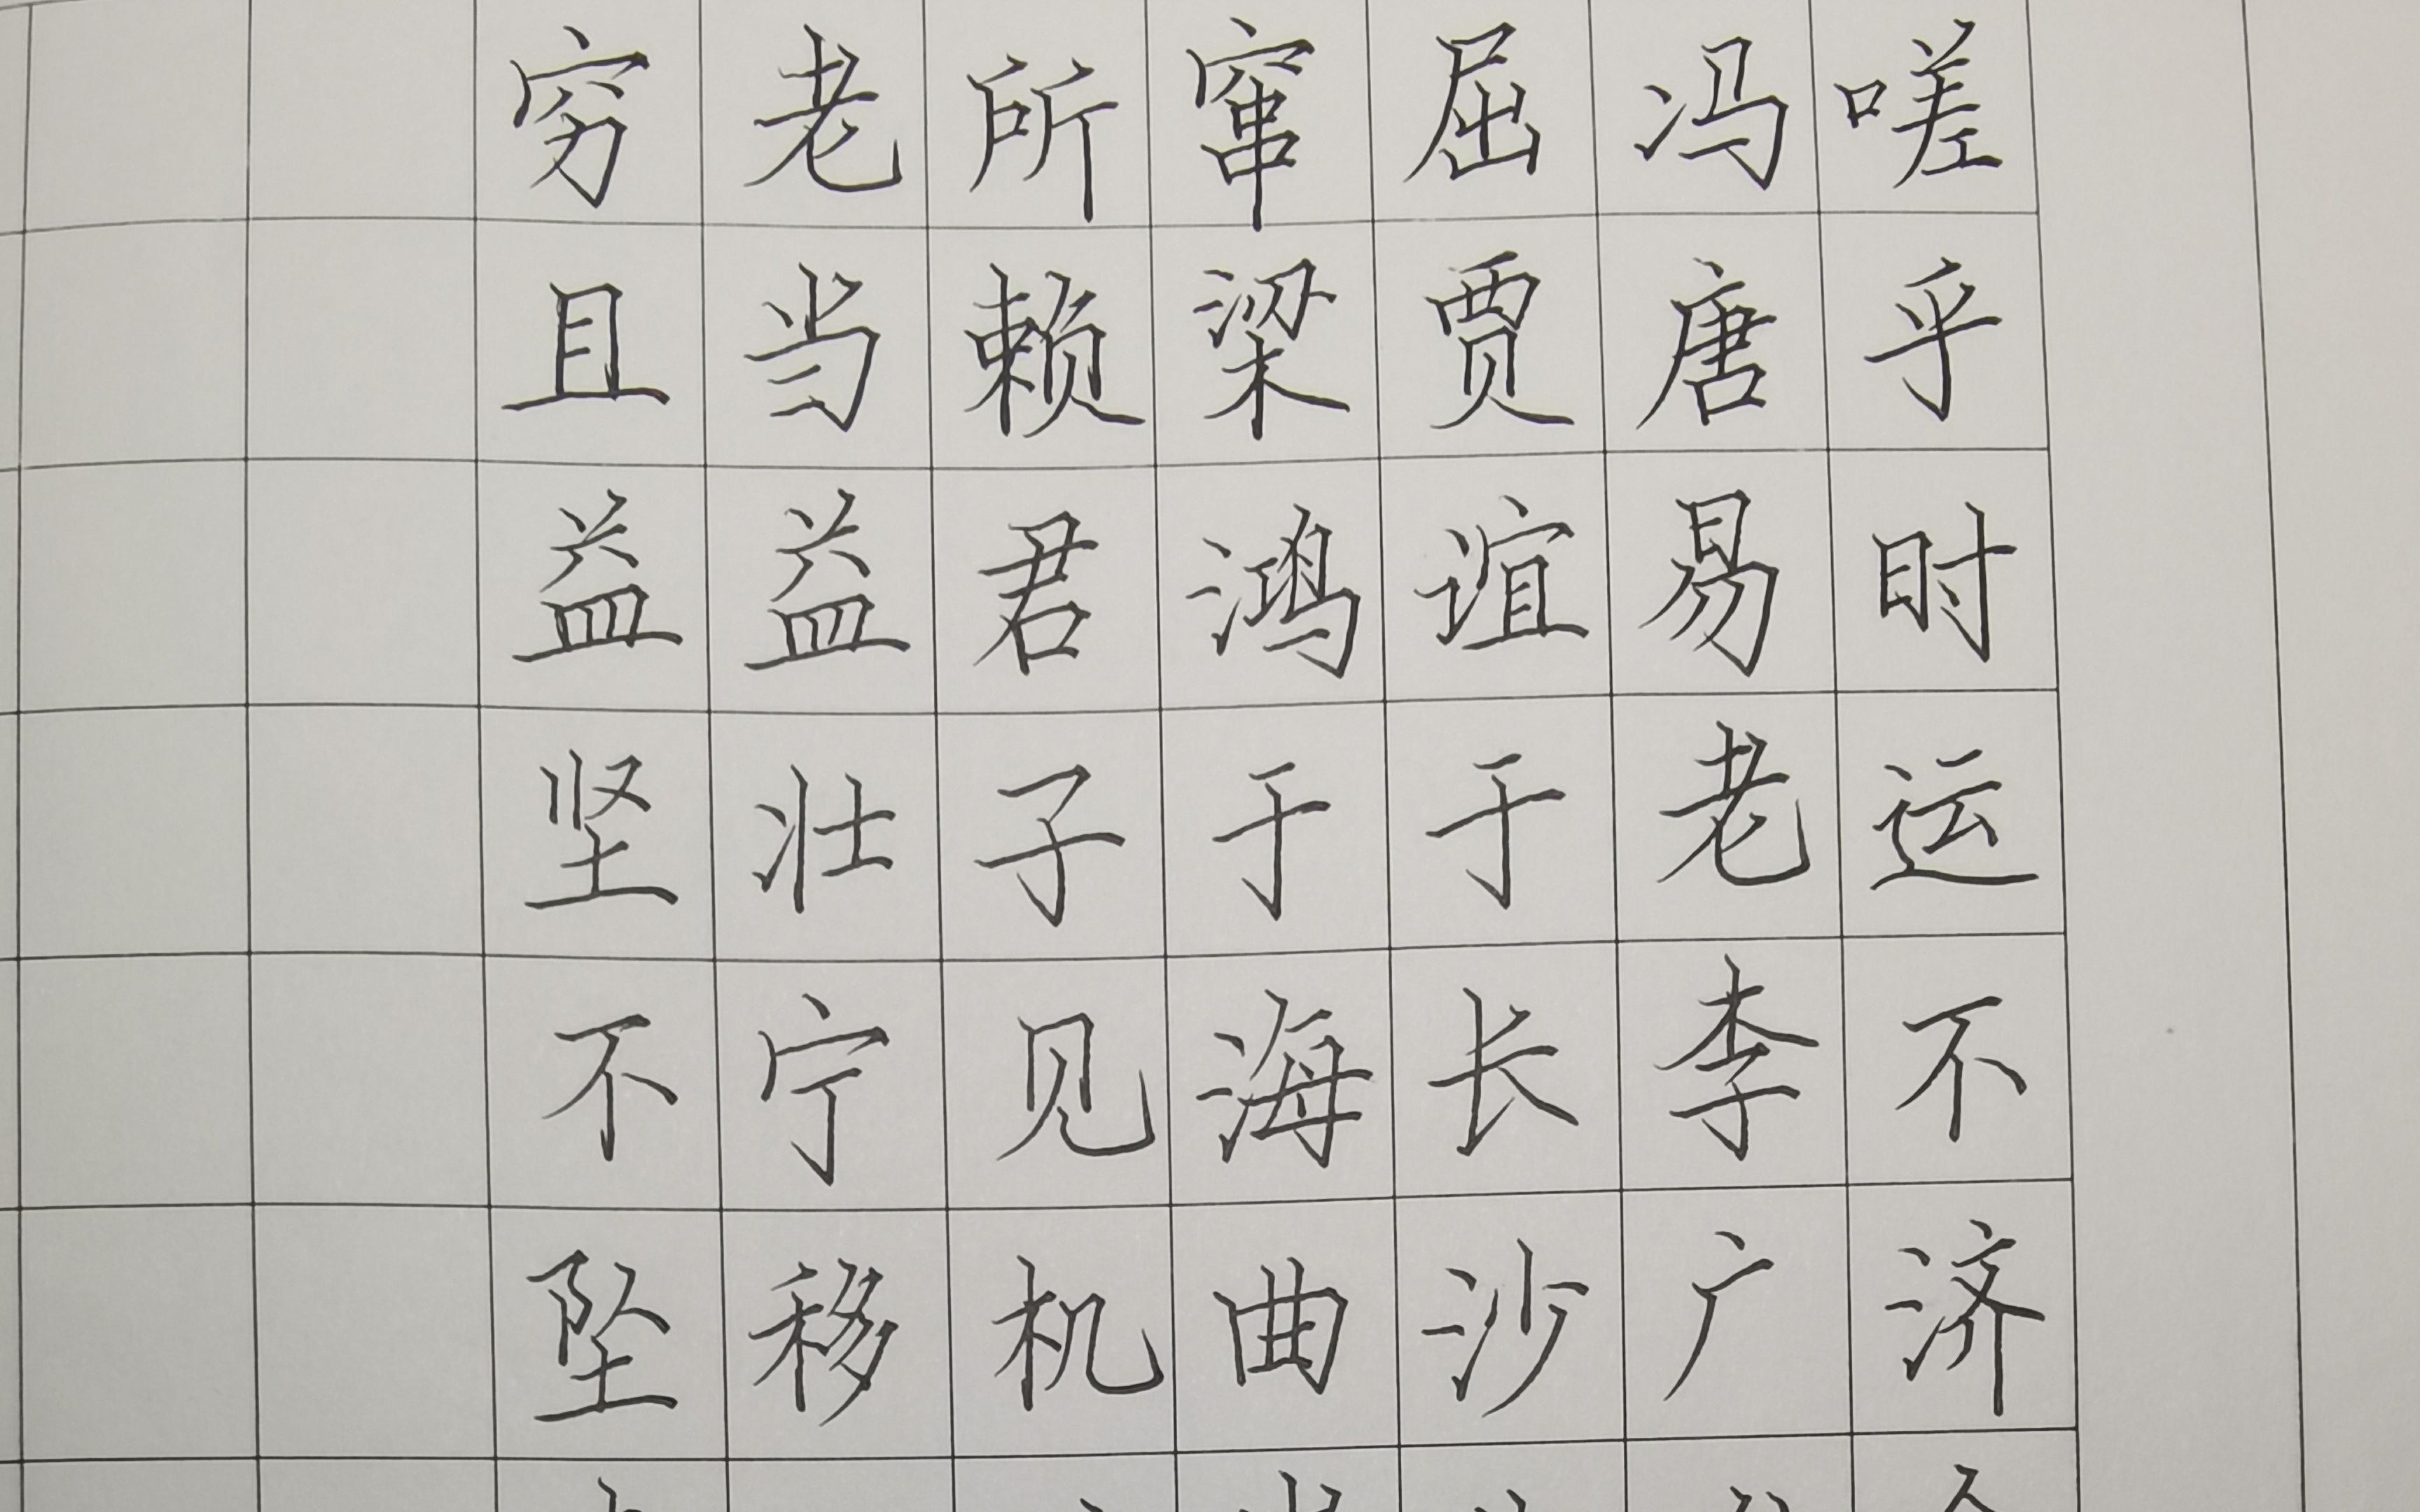 嗟乎时运不济
冯唐易老李广
屈贾谊于长沙
窜梁鸿于海曲
所赖君子见机
老当益壮宁移
穷且益坚不坠